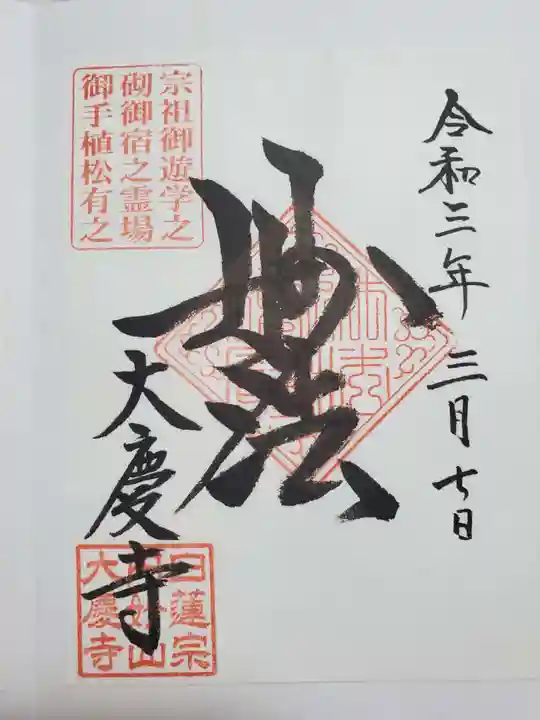 令和三年三月七日
妙法
宗祖御遊学之
砌御宿之霊場
御手植松有之
大慶寺
日蓮宗
大慶寺